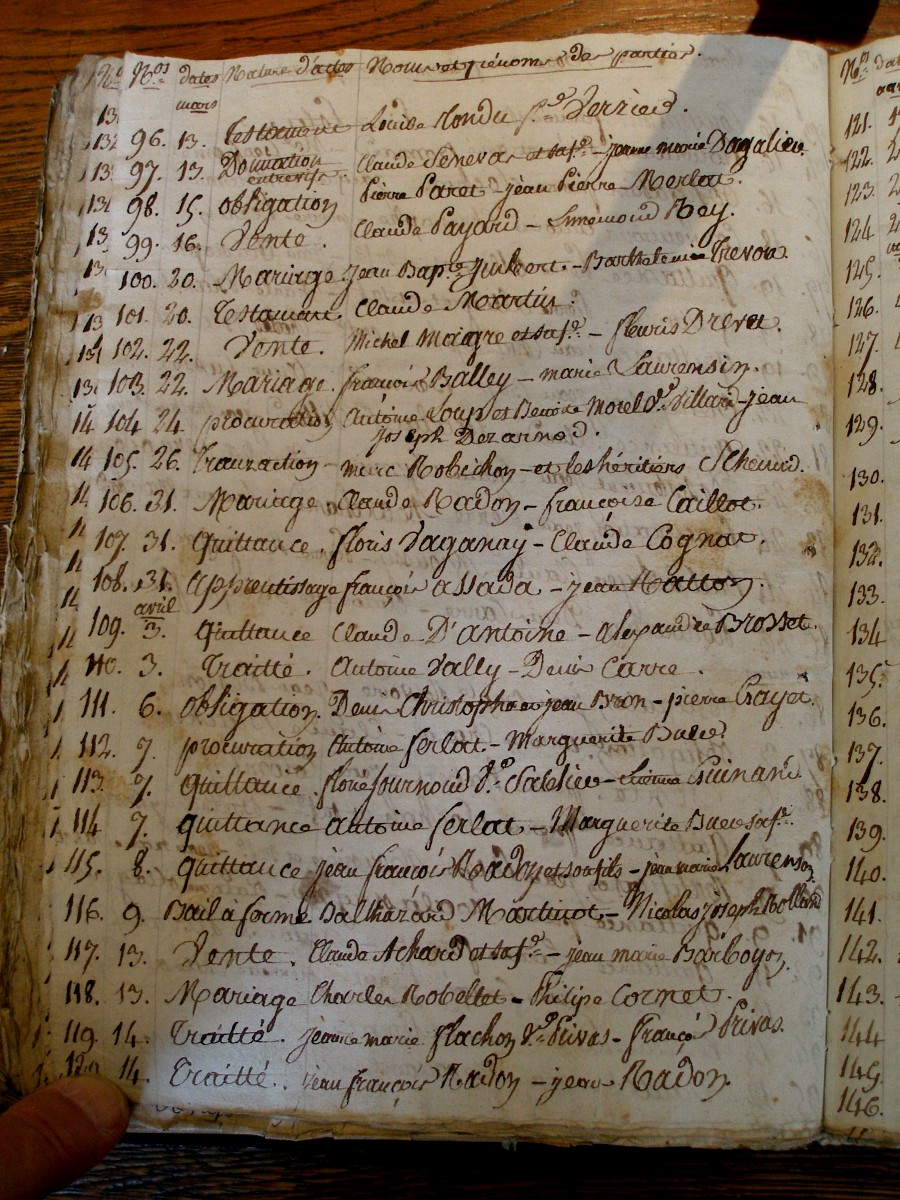 Nos dates Nature d'actes Noms et prénoms des parties.
mars
96. 13. Testament Louise Rondu fe. Verrier.
97. 13. Donnation entrevifs. Claude Senevas et sa fe. - jeanne marie Dagalier.
98. 15. obligation Pierre Parat - jean Pierre Merlat.
99. 16. Vente. Claude Payard - Simémond Rey.
100. 20. Mariage jean Bapte. jmbert. - Barthelemie Trevon.
101. 20. Testament Claude Martin.
102. 22. Vente. Michel Maigre et sa fe. - fleuris Drevet.
103. 22. Mariage. françois Balley - marie Laurensin.
104. 24. procuration Antoine Loup et Benoite Morel Ve. Villard - jean
joseph Dezarnod.
105. 26. Tranzaction - marc Robichon - et les héritiers Scheurd.
106. 31. Mariage - Claude Radon - françoise Caillot.
107. 31. Quittance. floris Vaganay - Claude Cognat.
108. 31. Apprentissage françois assada - jean Matton.
avril
109. 3. Quittance Claude D'antoine - alexandre Brosset.
110. 3. Traitté. Antoine Vally - Denis Carre.
111. 6. obligation. Denis Christophe et jean Bron - pierre Crayet.
112. 7. procuration Antoine ferlat. - Marguerite
113. 7. Quittance. fournond Ve. - Guinand
114 7. Quittance antoine ferlat - Marguerite sa fe.
115. 8. Quittance jean françois Radon et son fils - jean marie Laurenson
116. 9. Bail à ferme Balthazard Martinot - Nicolas joseph Rolland
117. 13. Vente. Claude Achard et sa fe. - jean marie Barboyon.
118. 13. Mariage Charles Robellet - Philipe Cornet.
119. 14. Traitté. jeanne marie flachon Ve. Privas - françs. Privas.
14. Traitté. jean françois Radon - jean Radon.
Nos
121.
122.
123.
124.
125.
126.
127.
128.
129.
130.
131.
132.
133.
134
135.
136.
137.
138.
139.
140.
141.
142.
143.
144
145.
146.